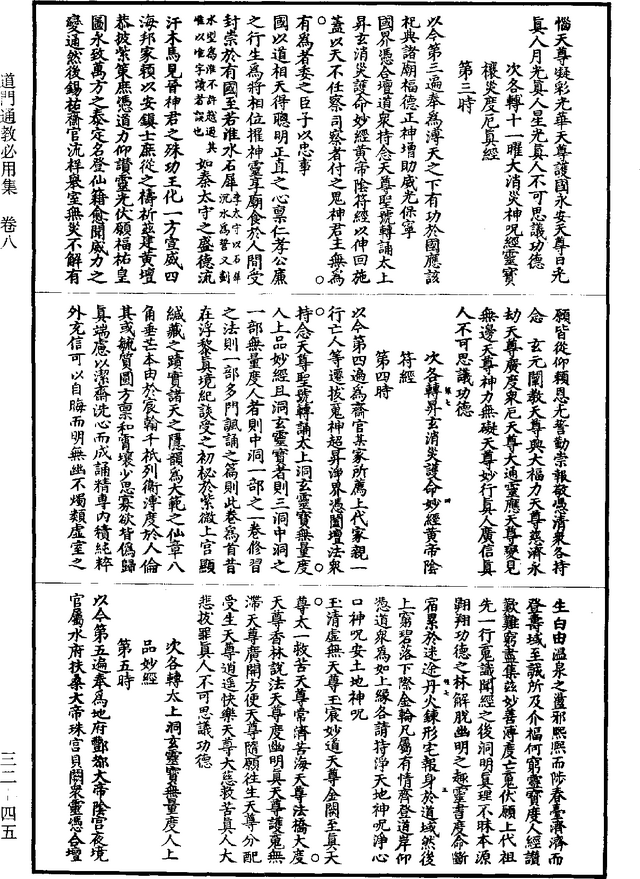 惱天尊凝彩光華天尊護國永安天尊日光
真人月光真人星光真人不可思議功德
次各轉十一曜大消災神咒經靈寶
禳災度厄真經
第三時
以今第三遍奉為溥天之下有功於國應該
祀典諸廟福德正神增助威光保寧
國界憑合壇道眾持念天尊聖號轉誦太上
昇玄消災護命妙經黃帝陰符經以伸回施
蓋以天不任察司察者付之鬼神君主無為
有為者委之臣子以忠事
國以道相天得聰明正直之心稟仁孝公廉
之行生為將相位擢神靈享廟食於人間受
封崇於有國至若淮水石犀李太守以石犀沉水為誓又劃
水塑為淮不許越過其惟以唯字讀者誤也如秦太守之盛德流
汗木馬見晉神君之殊功王化一方宣威四
海邦家賴以安鎮士庶從之禱祈茲建黃壇
恭披紫策庶憑道力仰讚靈光伏願福祐皇
圖永致萬方之泰定名登仙籍愈聞威力之
變通然後錫祐齋官流祥舉室無災不解有
願皆從仰賴恩光普勸崇報敬憑清眾各持
念 玄元闡教天尊興大福力天尊慈濟永
劫天尊廣度眾厄天尊大通靈應天尊變見
無邊天尊神力無礙天尊妙行真人廣信真
人不可思議功德
次各轉昇玄消災護命妙經黃帝陰
符經
第四時
以今第四遍為齋官某家所薦上代家親一
行亡人等遷拔魂神超昇淨界憑闔壇法眾
持念天尊聖號轉誦太上洞玄靈寶無量度
人上品妙經且洞玄靈寶者則三洞中洞之
一部無量度人者則中洞一部之一卷修習
之法則一部多門諷誦之篇則此卷為首昔
在浮黎真境紀談受之初秘於紫微上宮顯
緘藏之蹟實諸天之隱韻為大範之仙章八
角垂芒本由於宸翰千祇列衛溥度於人倫
其或毓質圓方稟和霄壤少思寡欲背偽歸
真端慮以潔齋洗心而成誦精專內積純粹
外充信可以自晦而明無幽不燭類虛室之
生白由溫泉之蕩邪熙熙而陟春臺濟濟而
登壽域至誠所及介福何窮靈寶度人經讚
歎難窮盡集茲妙善溥度亡魂伏願上代祖
先一行魂識聞經之後洞明真理不昧本源
翱翔功德之林解脫幽明之趣靈書度命斷
宿累於迷途丹火鍊形宅報身於道域然後
上窮碧落下際金輪凡屬有情齊登道岸仰
憑道眾為如上緣各請持淨天地神咒淨心
口神咒安土地神咒
玉清虛無天尊玉宸妙道天尊金闕至真天
尊太一救苦天尊常濟苦海天尊法橋大度
天尊香林說法天尊度幽明真天尊護魂無
滯天尊廣開方便天尊隨願往生天尊分配
受生天尊逍遙快樂天尊大慈救苦真人大
悲拔罪真人不可思議功德
次各轉太上洞玄靈寶無量度人上
品妙經
第五時
以今第五遍奉為地府酆都大帝陰宮夜境
官屬水府扶桑大帝珠宮貝闕眾靈憑合壇
道門通教必用集 卷八
三二-四五